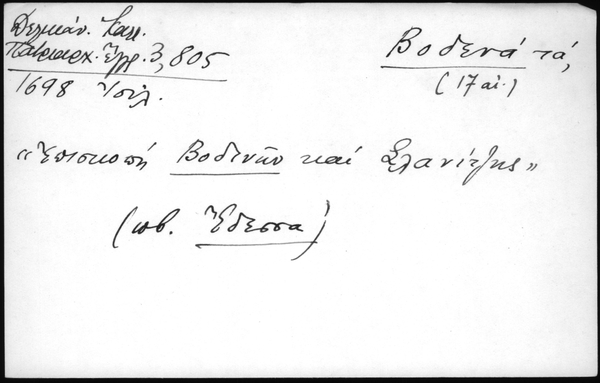 Δελικάν. Καλλ.
Πατριαρχ. Ἔγγρ. 3, 805
1698 Ἰούλ.
Βοδενά τά,
(17 αἰ.)
«Ἐπισκοπή Βοδινῶν καί Σλανίτζης»
(πβ. Ἔδεσσα)